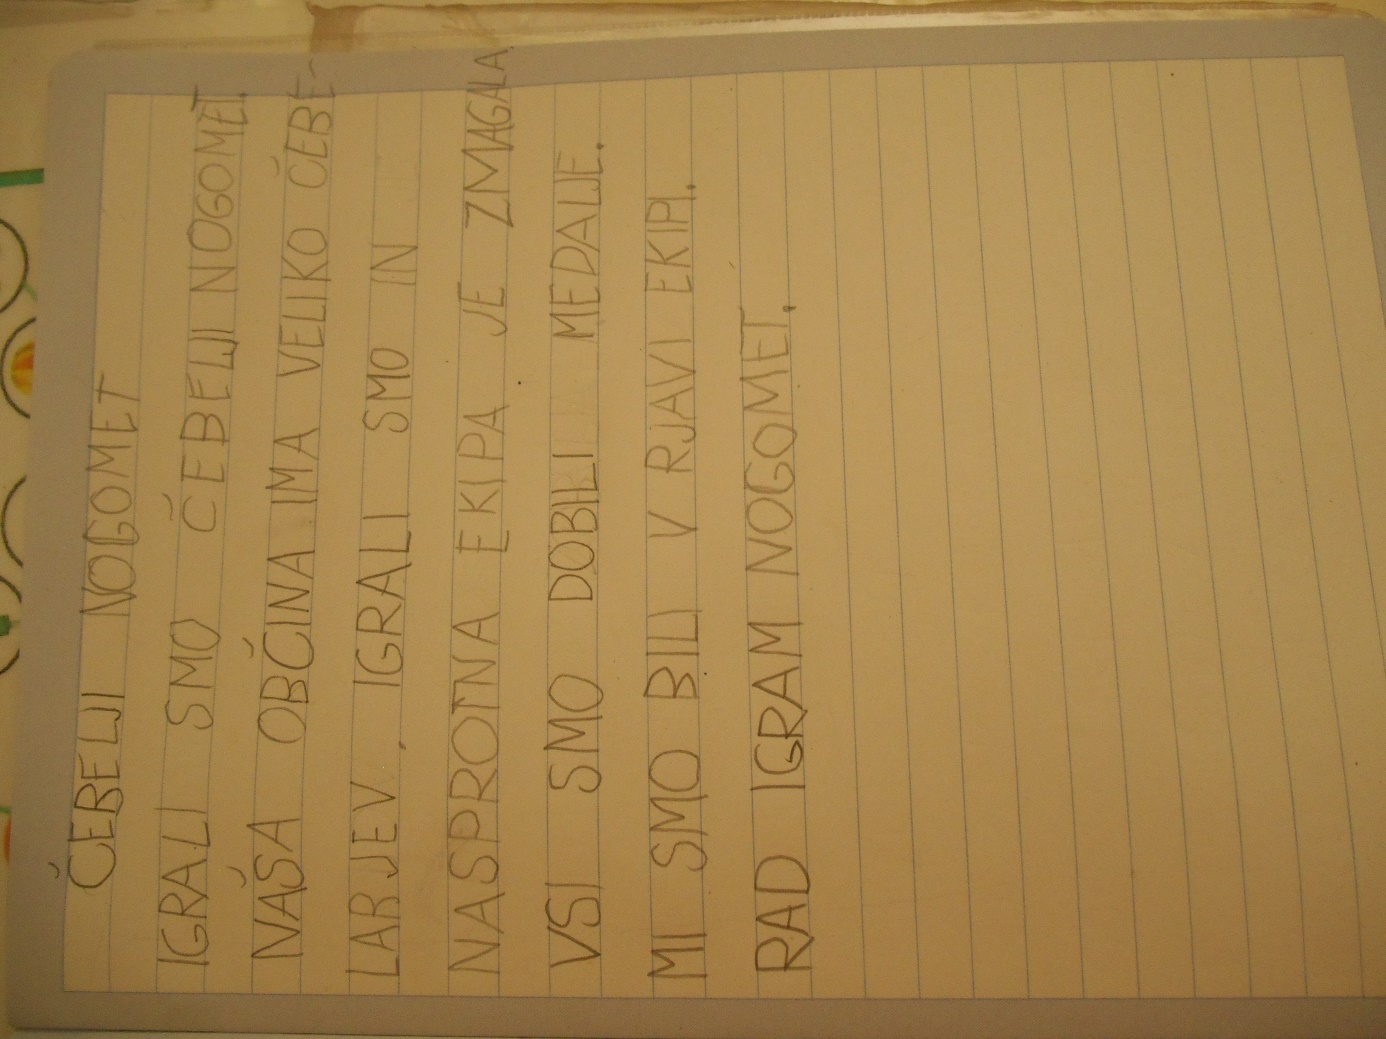 ČEBELJI NOGOMET
IGRALI SMO ČEBELJI NOGOMET.
NAŠA OBČINA IMA VELIKO ČEBE-
LARJEV. IGRALI SMO IN
NASPROTNA EKIPA JE ZMAGALA
VSI SMO DOBILI MEDALJE.
MI SMO BILI V RJAVI EKIPI.
RAD IGRAM NOGOMET.